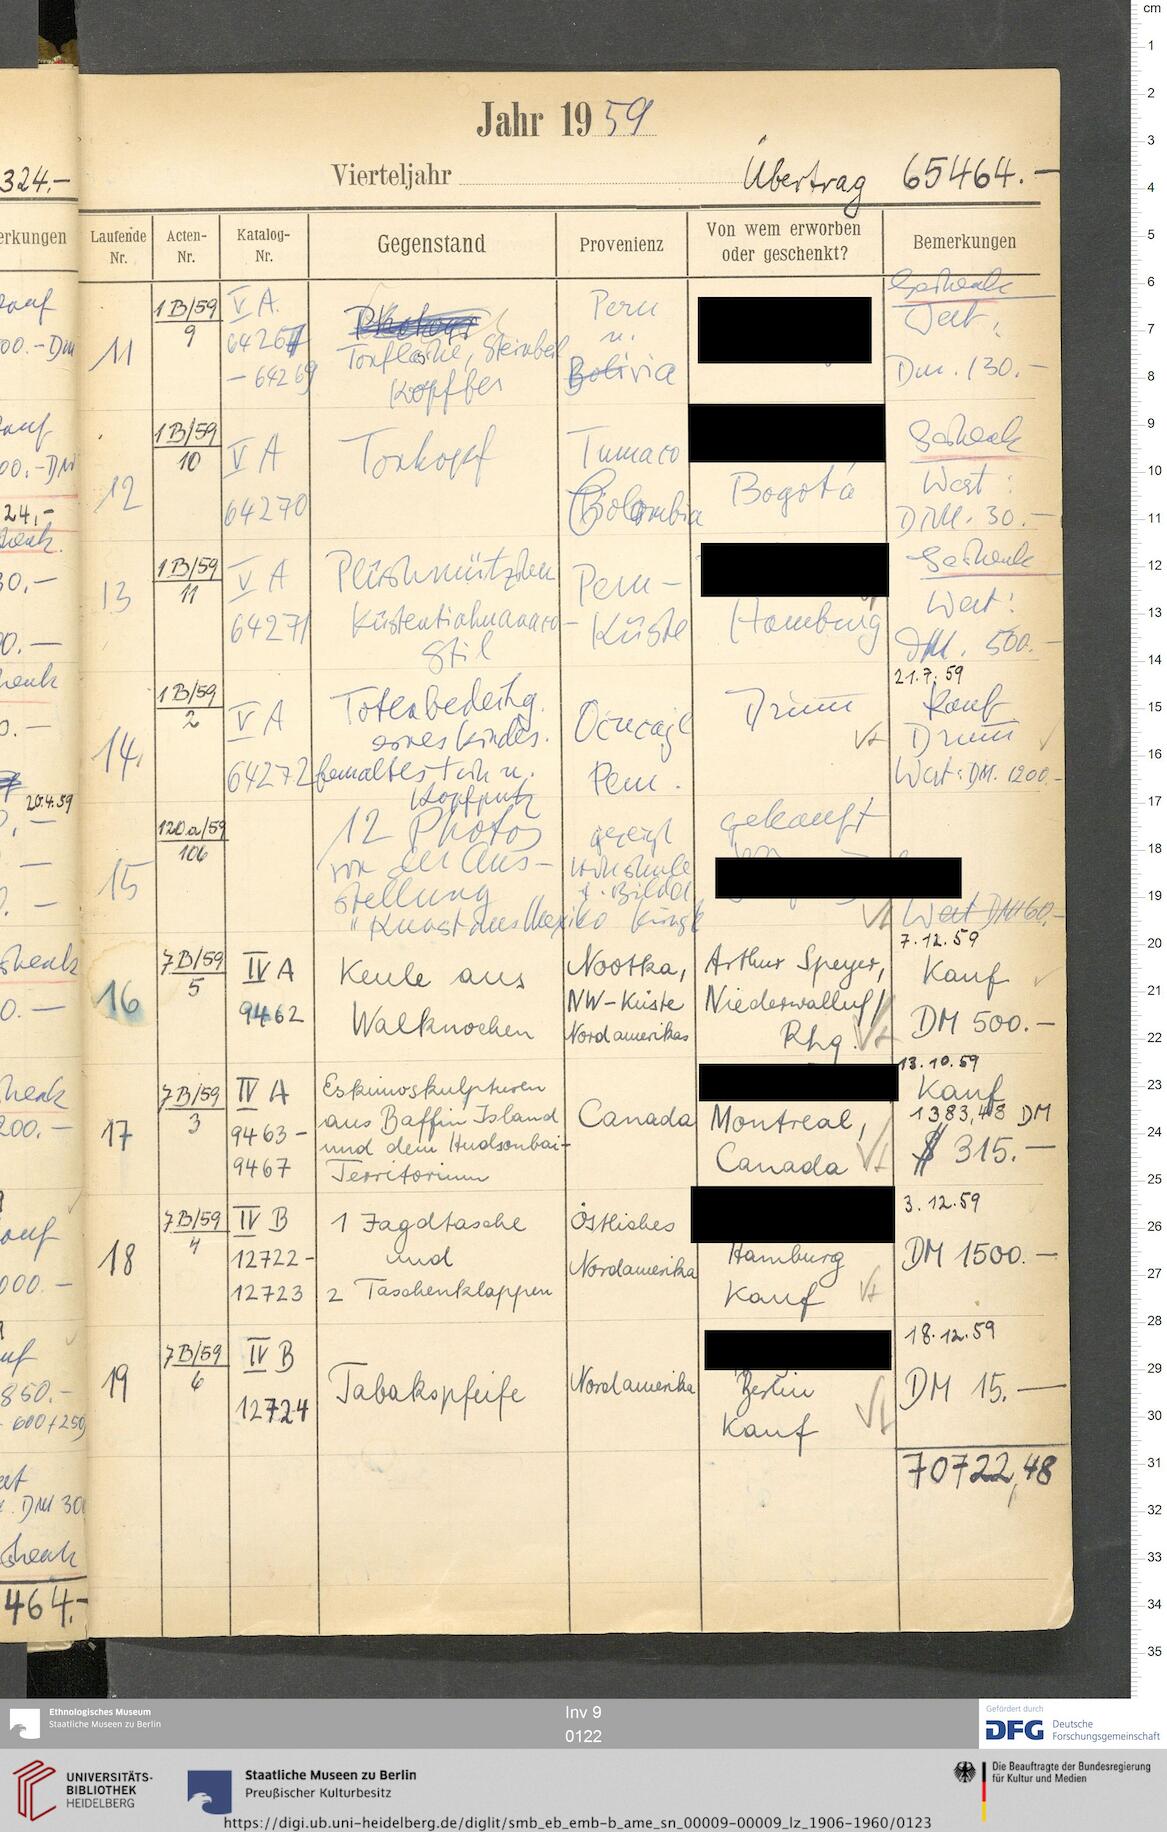 Jahr 1959
324.-
Vierteljahr
Übertrag 65464.-
Laufende Nr.
Acten-Nr.
Katalog-Nr.
Gegenstand
Provenienz
Von wem erworben oder geschenkt?
Bemerkungen
11
1B/59
9
V A
64267
- 64269
Tonflasche, Steinbeil
Kopfber
Peru
u.
Bolivia
Geschenk
Wert:
Dm. 130.-
12
1B/59
10
V A
64270
Tonkopf
Tumaco
Colombia
Bogotá
Geschenk
Wert:
DM. 30.-
13
1B/59
11
V A
64271
Plüschmützchen
Küstentiahuanaco-
Stil
Peru-
Küste
Hamburg
Geschenk
Wert:
DM. 500.-
14.
1B/59
2
V A
64272
eines Kindes.
bemaltes Tuch u.
Kopfputz
Ocucaje
Peru.
21.7.59
Kauf
Wert: DM. 1200.-
15
120a/59
106
12 Photos
von der Aus-
stellung
"Kunst aus Mexiko
gekauft
von
Wert DM 60.-
16
7B/59
5
IV A
9462
Keule aus
Walknochen
Nootka,
NW-Küste
Nordamerikas
Arthur Speyer,
Niederwalluf/
Rhg.
7.12.59
Kauf
DM 500.-
17
7B/59
3
IV A
9463-
9467
Eskimoskulpturen
aus Baffin Island
und dem Hudsonbai-
Territorium
Canada
Montreal,
Canada
13.10.59
Kauf
1383,48 DM
$ 315.-
18
7B/59
4
IV B
12722-
12723
1 Jagdtasche
und
2 Taschenklappen
Östliches
Nordamerika
Hamburg
Kauf
3.12.59
DM 1500.-
19
7B/59
6
IV B
12724
Tabakspfeife
Nordamerika
Berlin
Kauf
18.12.59
DM 15.-
70722,48
20.4.59
464.-
cm
1
2
3
4
5
6
7
8
9
10
11
12
13
14
15
16
17
18
19
20
21
22
23
24
25
26
27
28
29
30
31
32
33
34
35
Ethnologisches Museum
Staatliche Museen zu Berlin
Inv 9
0122
Gefördert durch
DFG Deutsche
Forschungsgemeinschaft
UNIVERSITÄTS-
BIBLIOTHEK
HEIDELBERG
Staatliche Museen zu Berlin
Preußischer Kulturbesitz
Die Beauftragte der Bundesregierung
für Kultur und Medien
https://digi.ub.uni-heidelberg.de/diglit/smb_eb_emb-b_ame_sn_00009-00009_lz_1906-1960/0123